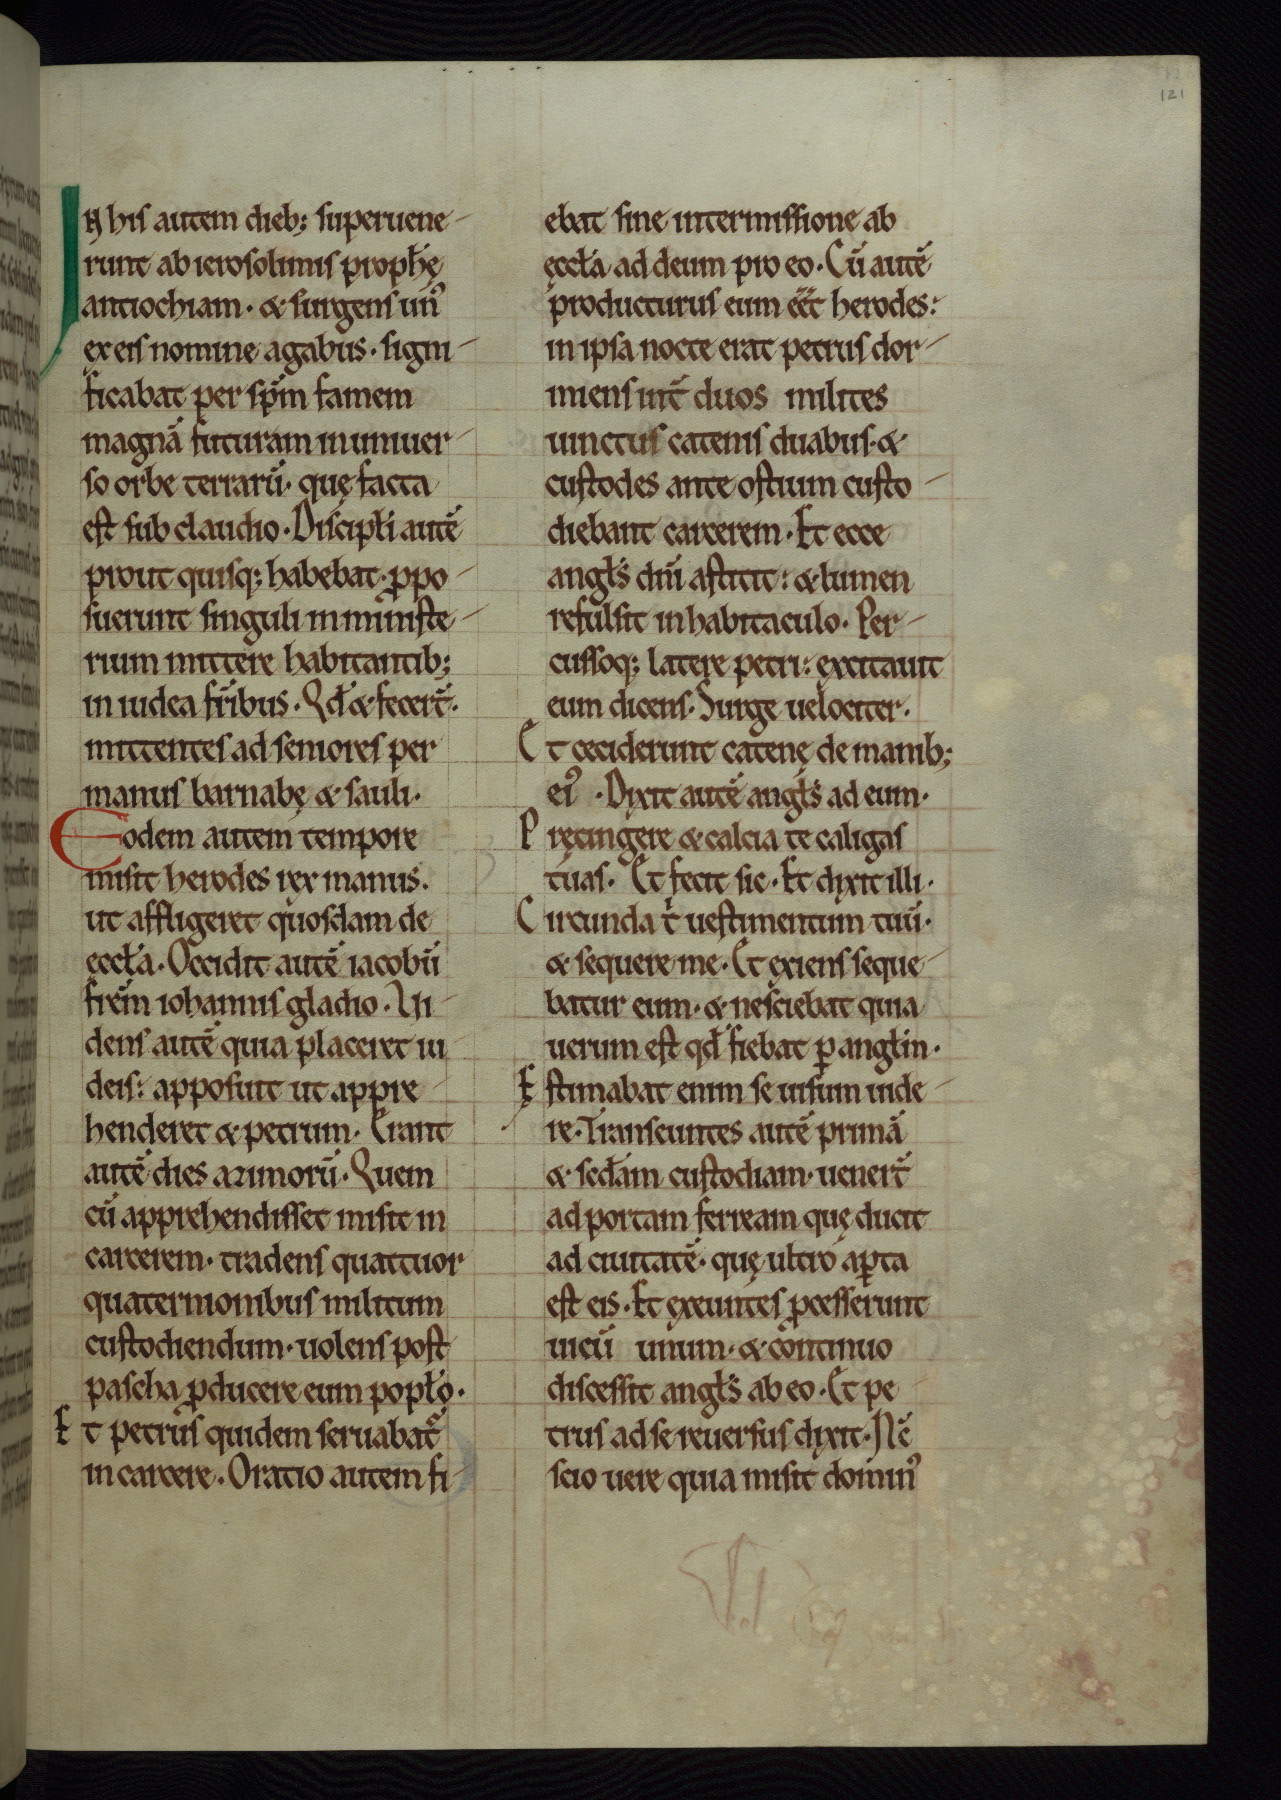 121
IN his autem dieb; superuene-
runt ab ierosolimis prophę̄
antiochiam· & surgens un᾽
ex eis nomine agabus· signi-
ficabat per sp̄m famem
magnā futuram in uniuer-
so orbe terrarū· quę facta
est sub claudio· Discipłi autē
prout quisq; habebat· ꝓpo-
suerunt singuli in ministe-
rium mittere habitantib;
in iudea fr̄ibus· Qd̄ & fecer̄t·
mittentes ad seniores per
manus barnabę & sauli·
Eodem autem tempore
misit herodes rex manus·
ut affligeret quosdam de
eccła· Occidit autē iacobū
fr̄em iohannis gladio· Vi-
dens autē quia placeret iu
deis: apposuit ut appre-
henderet & petrum· Erant
autē dies azimorū· Quem
cū apprehendisset misit in
carcerem· tradens quattuor
quaternionibus militum
custodiendum· uolens post
pascha ꝓducere eum popło·
Et petrus quidem seruabat᷑
in carcere· Oratio autem fi-
ebat sine intermissione ab
ęccła ad deum pro eo· Cū autē
producturus eum eēt herodes:
in ipsa nocte erat petrus dor-
miens int̄ duos milites
uinctus catenis duabus· &
custodes ante ostium custo-
diebant carcerem· Et ecce
angłs dn̄i astitit: & lumen
refulsit in habitaculo· Per-
cussoq; latere petri: excitauit
eum dicens· Surge uelociter·
Et ceciderunt catenę de manib;
ei᾽· Dixit autē angłs ad eum·
Pręcingere & calcia te caligas
tuas· Et fecit sic· Et dixit illi·
Circunda t̄ uestimentum tuū·
& sequere me· Et exiens seque-
batur eum· & nesciebat quia
uerum est qd̄ fiebat ꝑ angłm·
Estimabat enim se uisum uide-
re· Transeuntes autē primā
& secd̄am custodiam· uener̄t
ad portam ferream quę ducit
ad ciuitatē· quę ultro aꝑta
est eis· Et exeuntes ꝓcesserunt
uicū unum· & continuo
discessit angłs ab eo· Et pe
trus ad se reuersus dixit· Nc̄
scio uere quia misit domin᾽